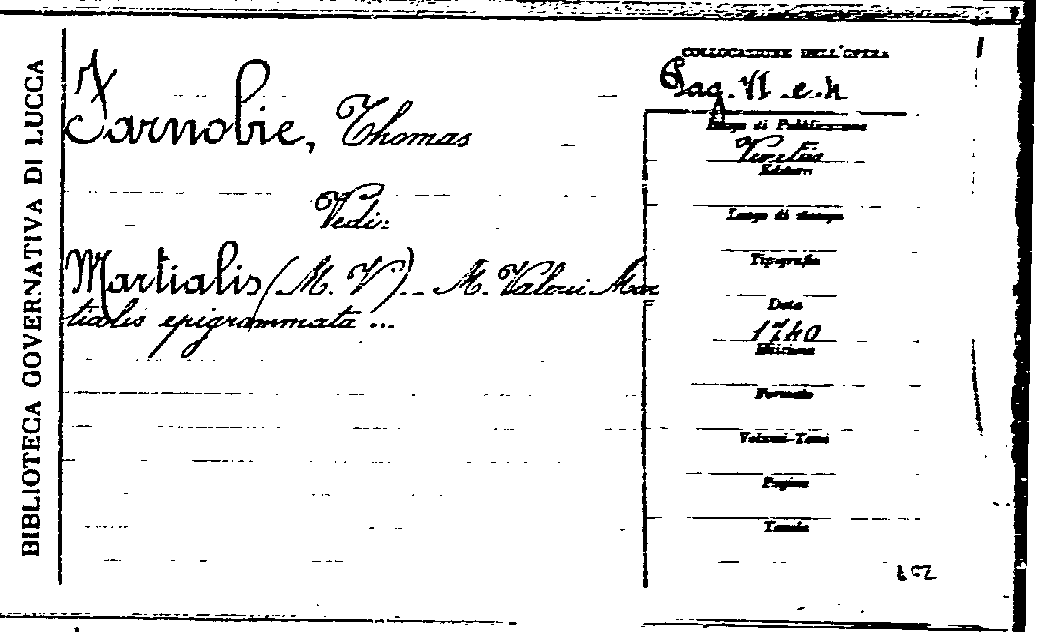 BIBLIOTECA GOVERNATIVA DI LUCCA
Farnobie, Thomas
Vedi:
Martialis (M. V.) - M. Valerii Mar
tialis epigrammata ...
COLLOCAZIONE DELL'OPERA
Pag. VI. e. 4
Luogo di Pubblicazione
Venetiis
Editori
Luogo di stampa
Tipografia
Data
1740
Edizione
Formato
Volumi-Tomi
Pagine
Tavole